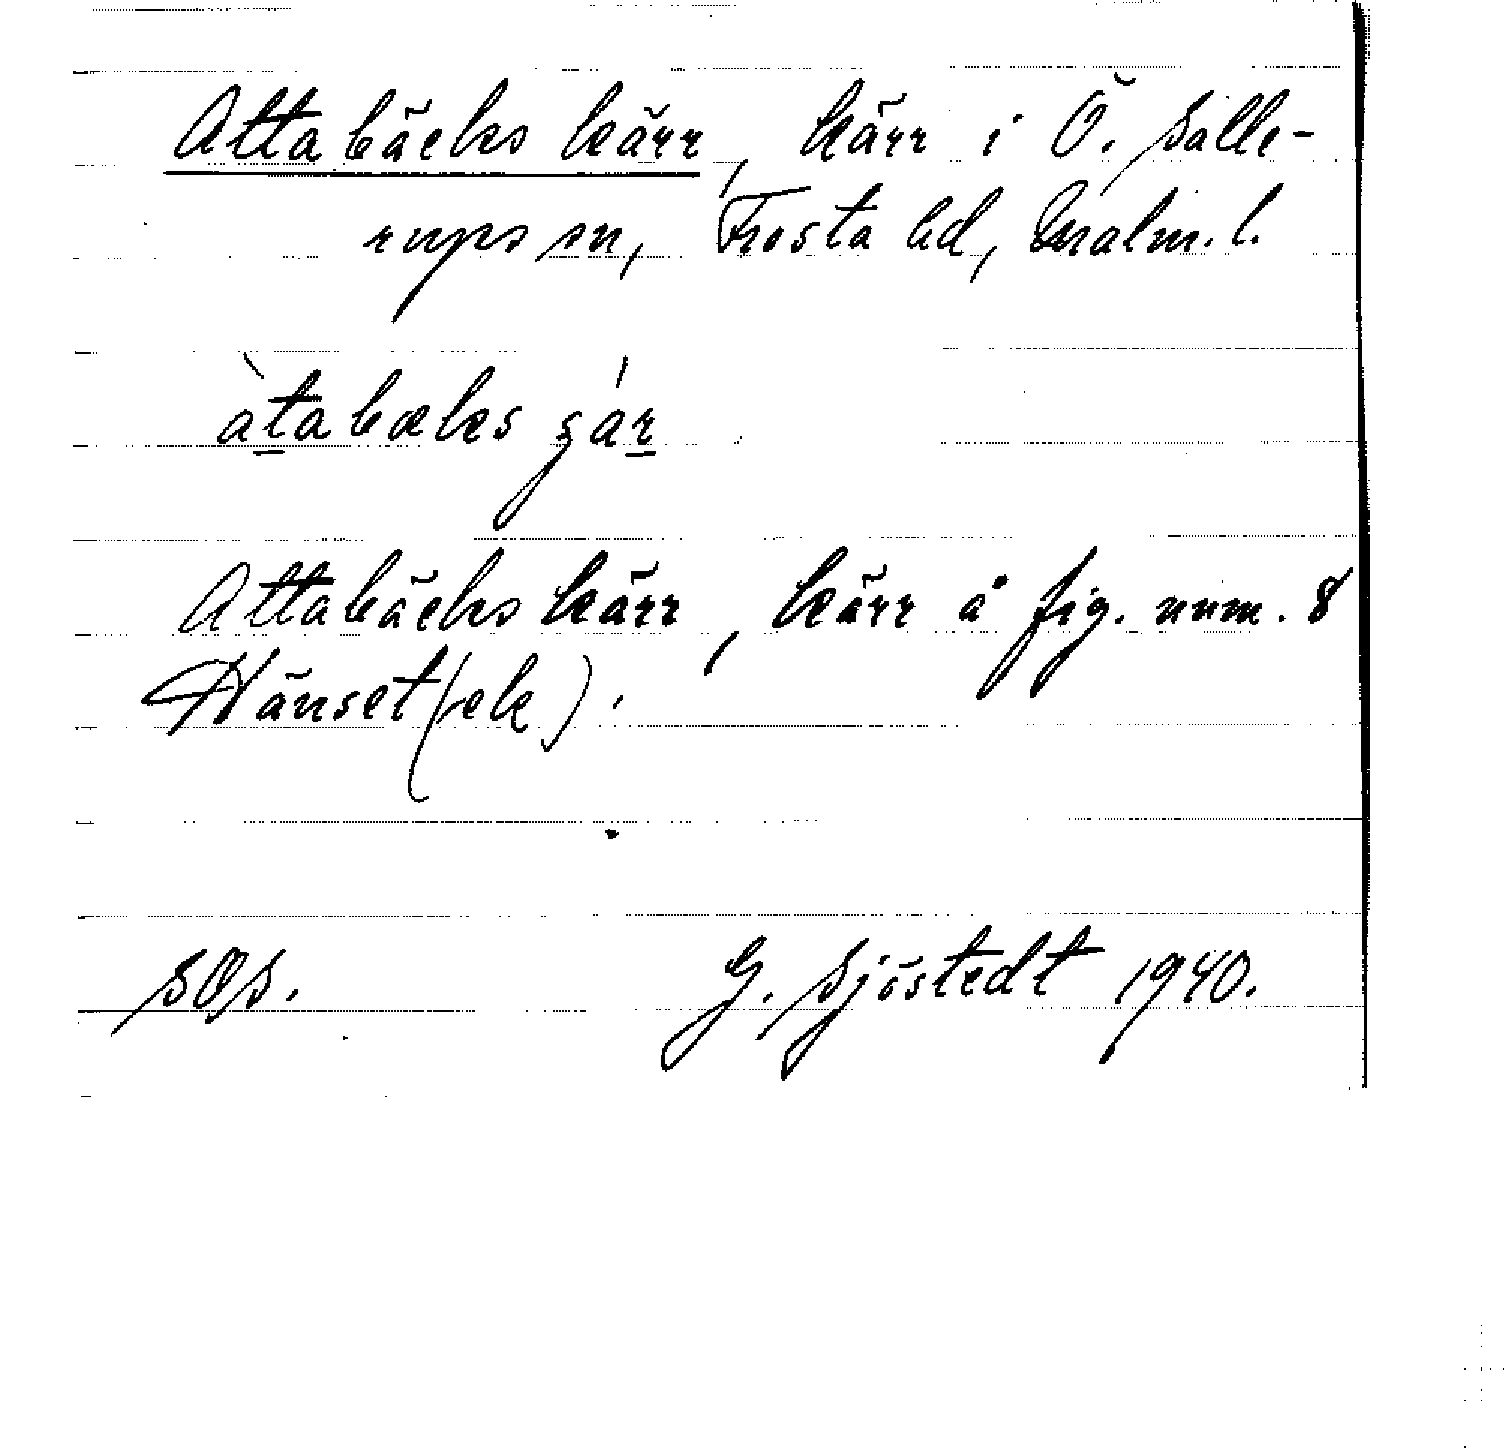 Attabäckskärr, kärr i Ö. Salle-
rups sn, Frosta hd, Malm. l.
àtabæks ʒár
Attabäckskärr, kärr å fig. num. 8
Hänset (ek).
SOS.  G. Sjöstedt 1940.